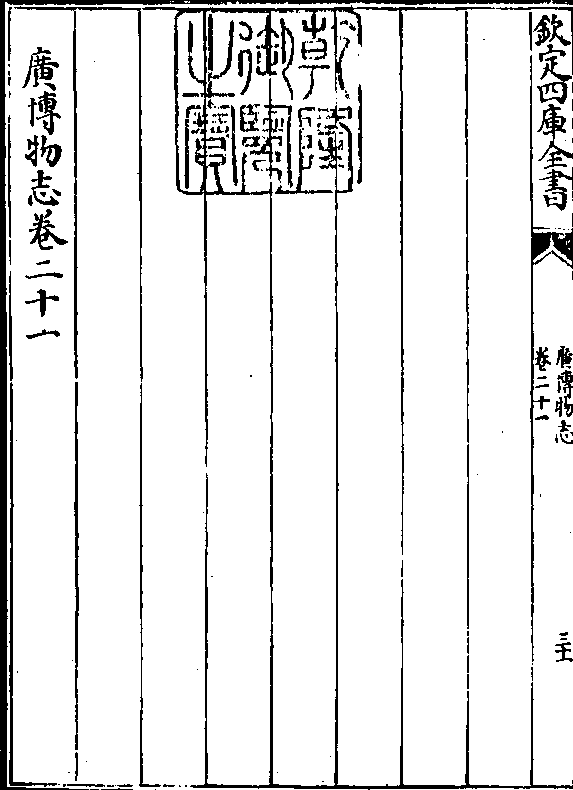 欽定四庫全書
廣博物志
卷二十一
乾隆
御覽
之寶
廣博物志卷二十一